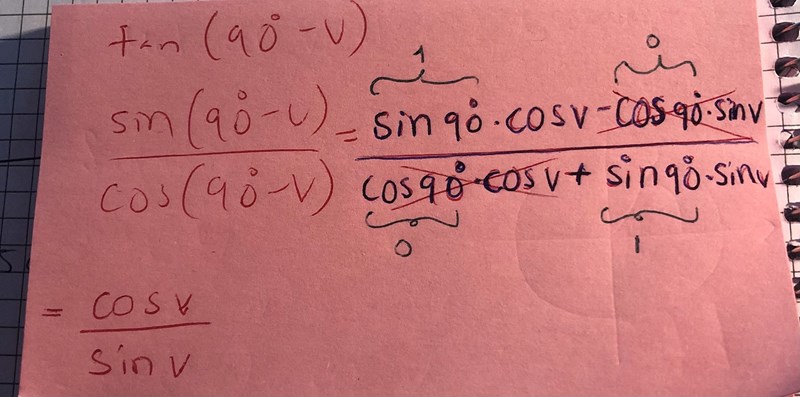 tan (90° - v)
1 0
sin(90° - v) / cos(90° - v) = sin 90° · cos v - cos 90° · sin v / cos 90° · cos v + sin 90° · sin v
0 1
= cos v / sin v